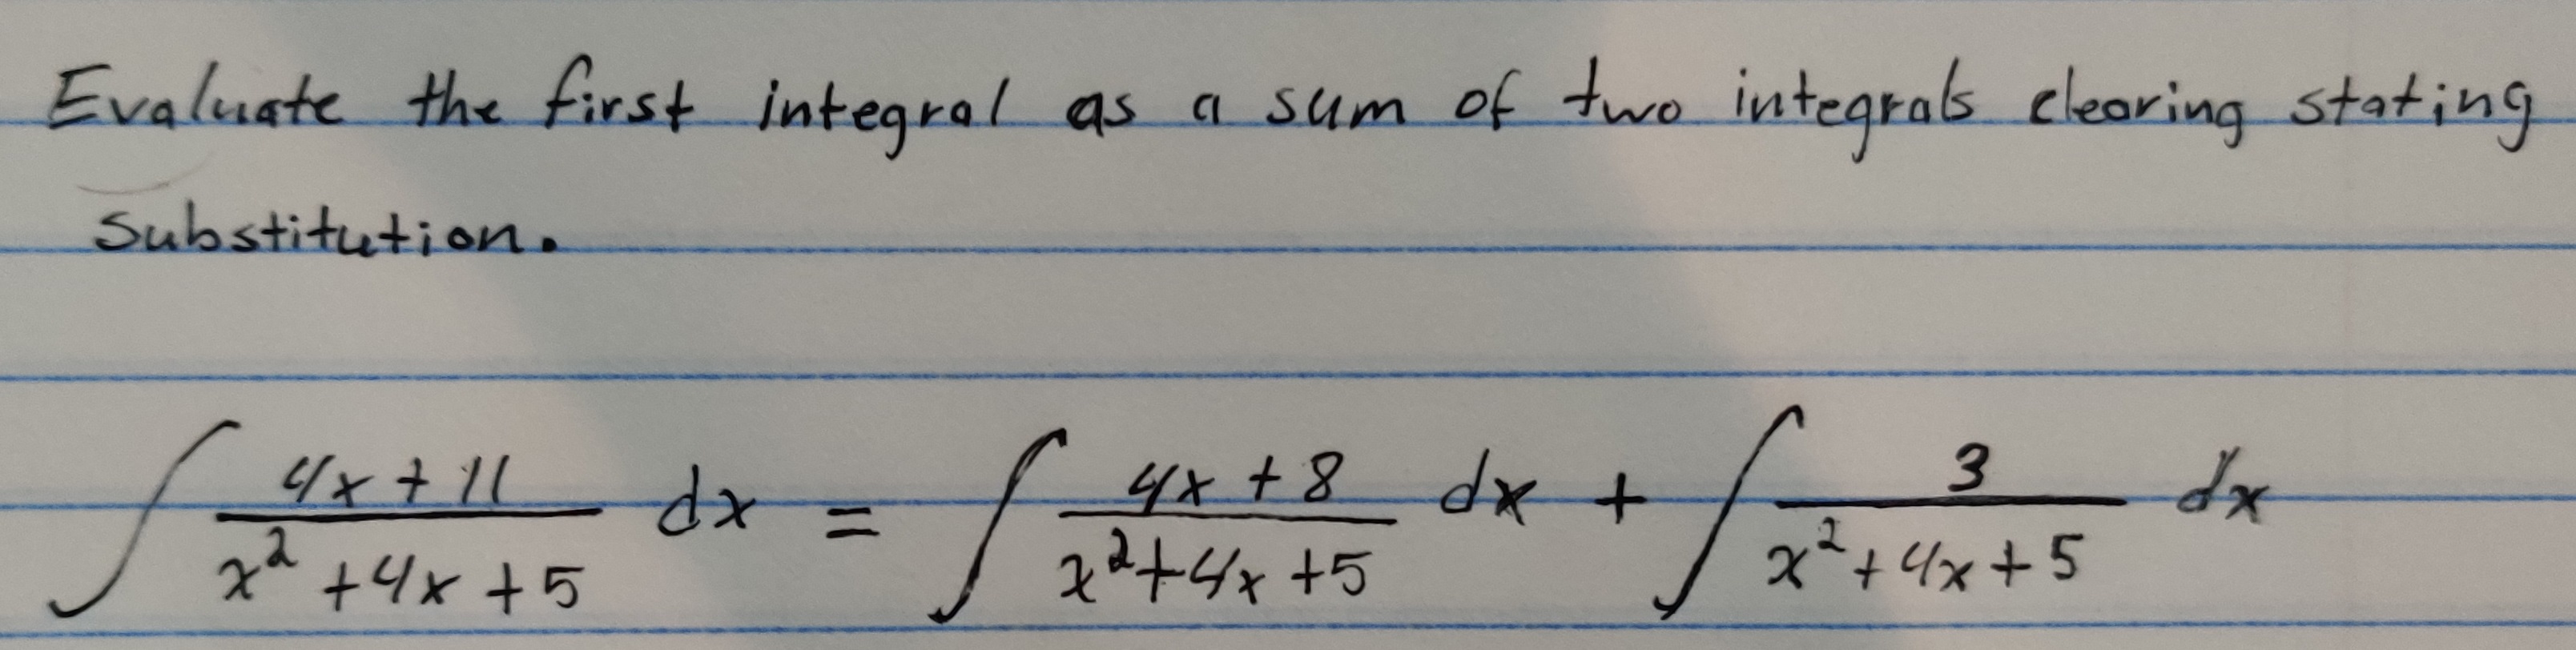 Evaluate the first integral as a sum of two integrals clearing stating
substitution.
∫ (4x + 11)/(x² + 4x + 5) dx = ∫ (4x + 8)/(x² + 4x + 5) dx + ∫ 3/(x² + 4x + 5) dx